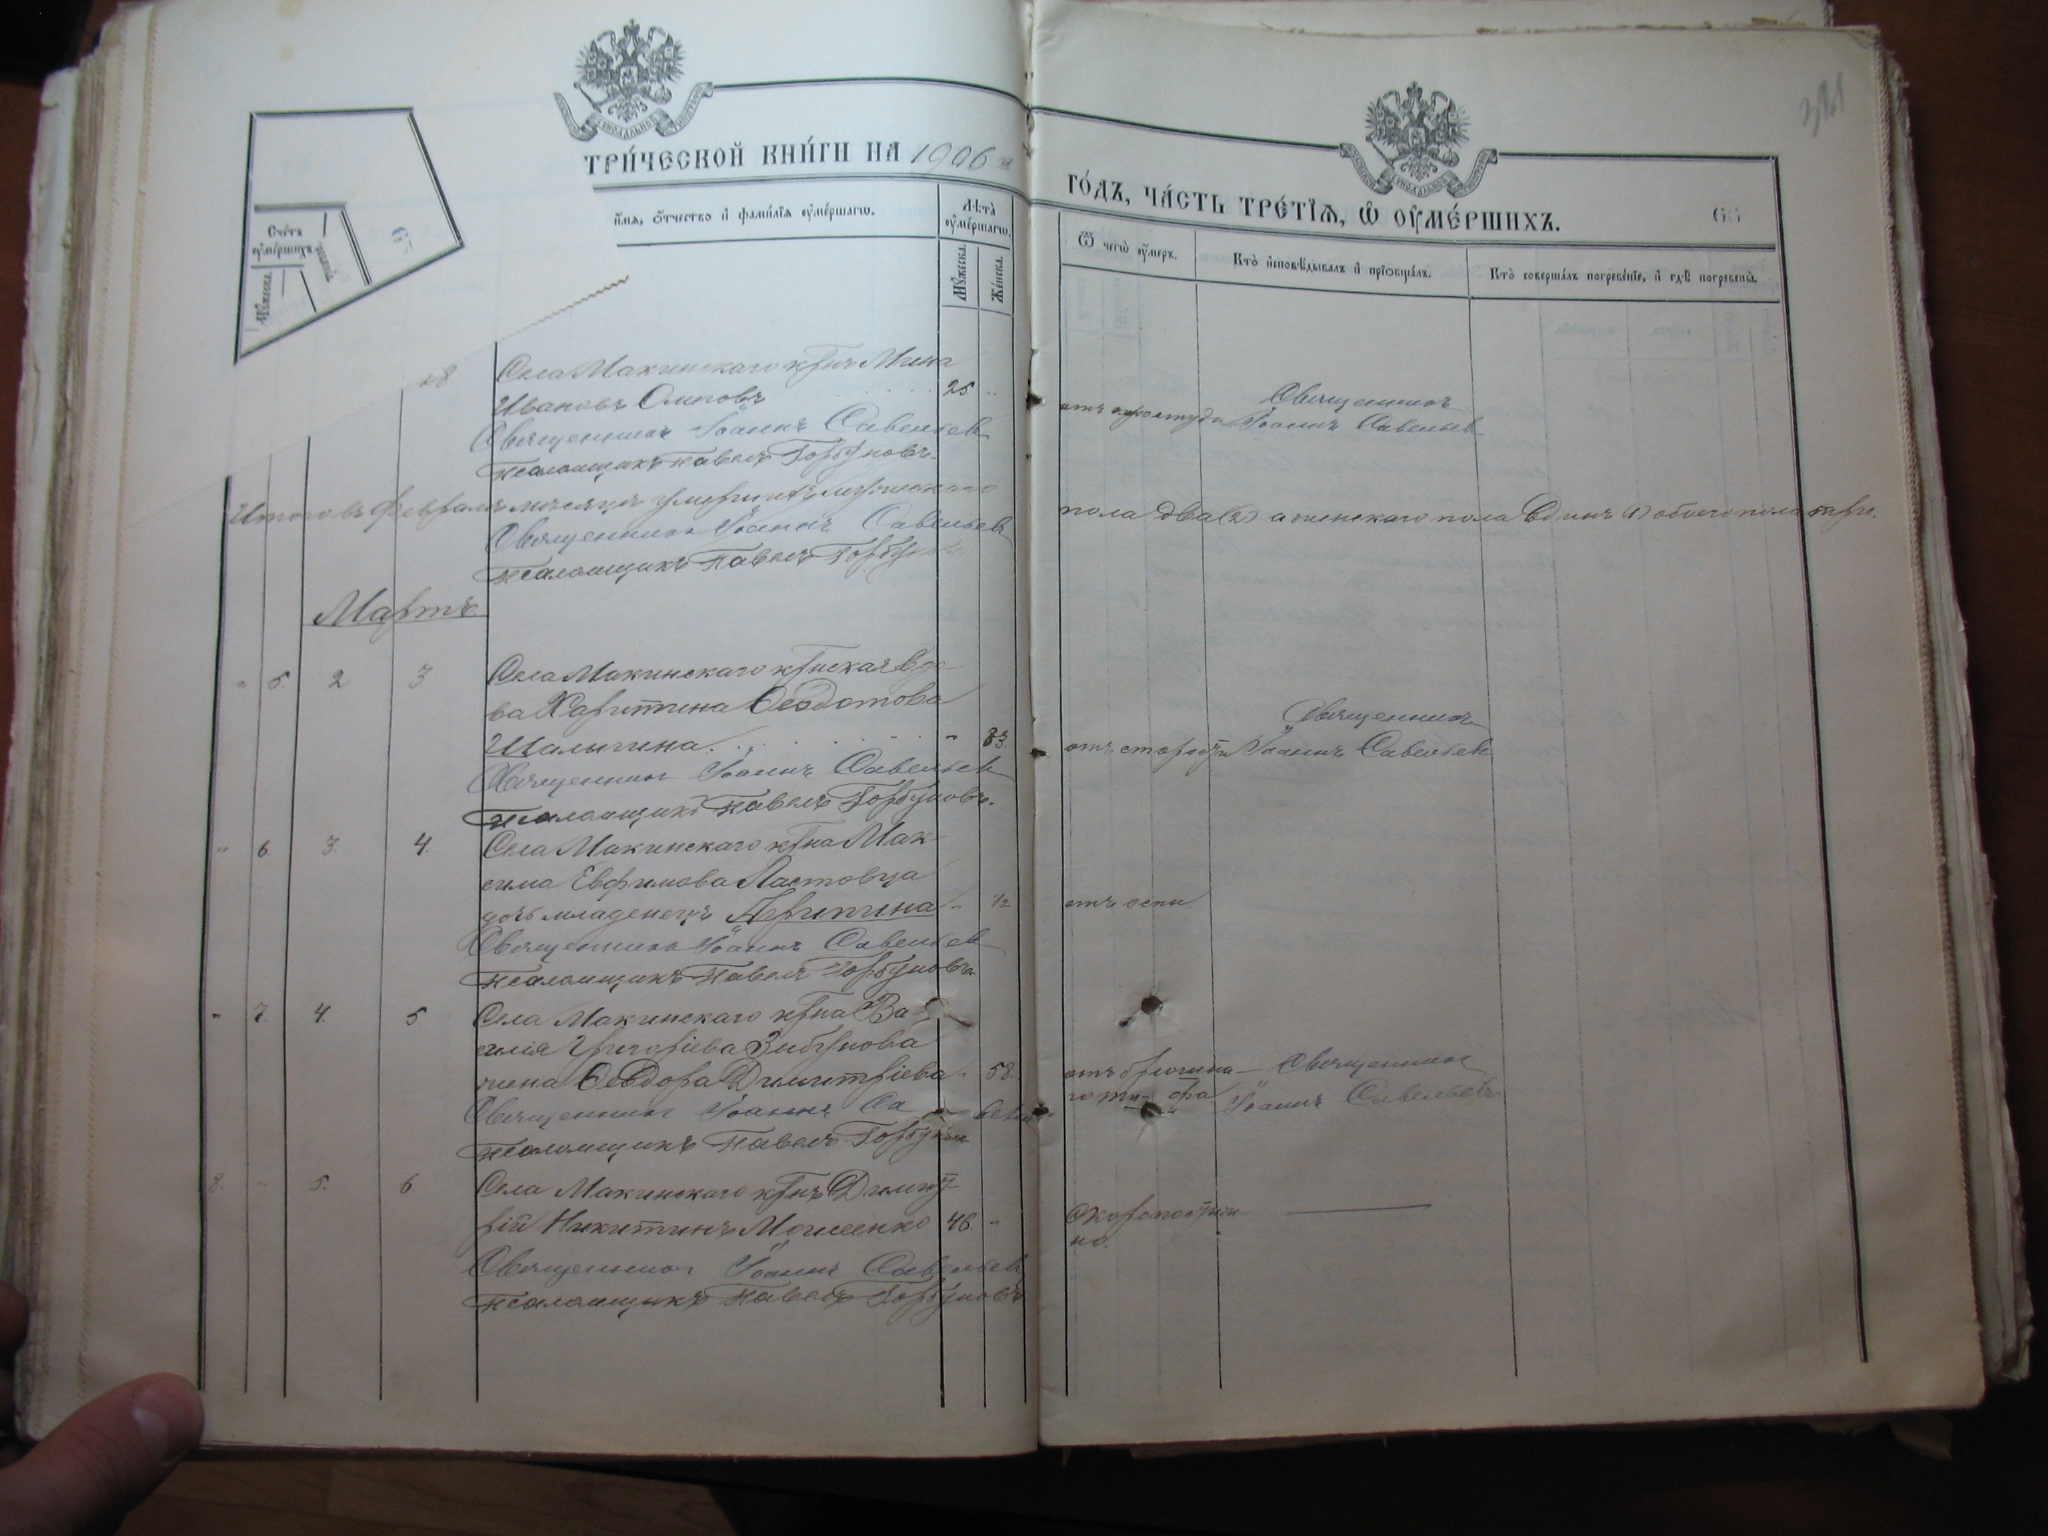 ТРИ́ЧЕСКОЙ КНИ́ГИ НА 1906
ГО́ДЪ, ЧА́СТЬ ТРЕ́ТІѦ, Ѡ҆ ОУ҆МЕ́РШИХЪ.
381
66
67
Сче́тъ оу҆ме́ршихъ.
Мꙋ́жеска.
И҆́мѧ, ѻ҆́тчество и҆ фами́лїѧ оу҆ме́ршагѡ.
Лѣ́та оу҆ме́ршагѡ.
Мꙋ́жеска.
Же́нска.
Ѿ чегѡ̀ оу҆́меръ.
Кто̀ и҆сповѣ́дывалъ и҆ прїѡбща́лъ.
Кто̀ соверша́лъ погребе́нїе, и҆ гдѣ̀ погребены̀.
Села Макинскаго крнъ Мина
Ивановъ Осиповъ 25 отъ простуды
Священникъ Іоаннъ Савельев
Священникъ Іоаннъ Савельев
Псаломщикъ Павелъ Горбуновъ
Итого въ Февралѣ мѣсяцѣ умершихъ мужескаго пола два (2) а женскаго пола Единъ (1) обоего пола
Священникъ Іоаннъ Савельев
Псаломщикъ Павелъ Горбуновъ
Мартъ
" 5. 2 3 Села Макинскаго крнская вдо-
ва Харитина Ѳеодотова
Шалыгина " 83. отъ старости
Священникъ Іоаннъ Савельев
Священникъ Іоаннъ Савельев
Псаломщикъ Павелъ Горбуновъ.
" 6. 3. 4. Села Макинскаго крна Мак-
сима Евфимова Ластовца
дочь младенецъ " 1/2 отъ оспы.
Священникъ Іоаннъ Савельев
Псаломщикъ Павелъ Горбуновъ
" 7. 4. 5. Села Макинскаго крна Ва-
силія Григоріева Зибунова
жена Ѳеодора Димитріева " 58. отъ брюшна-
го тифа
Священникъ Іоаннъ Савельевъ
Священникъ Іоаннъ Савельев
Псаломщикъ Павелъ Горбуновъ
8. " 5. 6. Села Макинскаго крнъ Димит-
рій Никитинъ Моисеенко 46. " Скоропостиж
но.
Священникъ Іоаннъ Савельев
Псаломщикъ Павелъ Горбуновъ